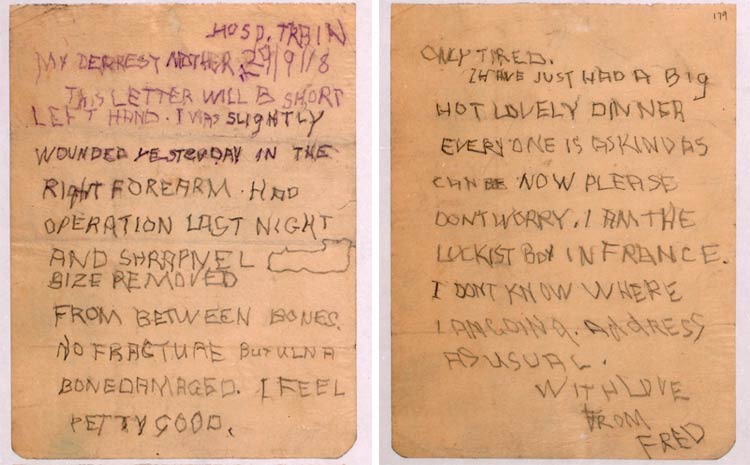 HOSP. TRAIN
MY DERREST MOTHER. 29/9/18
THIS LETTER WILL B SHORT
LEFT HAND. I WAS SLIGHTLY
WOUNDED YESTERDAY IN THE
RIGHT FOREARM. HAD
OPERATION LAST NIGHT
AND SHRAPNEL
SIZE REMOVED
FROM BETWEEN BONES.
NO FRACTURE BUT ULNA
BONE DAMAGED. I FEEL
PETTY GOOD.
179
ONLY TIRED.
I HAVE JUST HAD A BIG
HOT LOVELY DINNER
EVERYONE IS AS KIND AS
CAN BE NOW PLEASE
DONT WORRY. I AM THE
LUCKIST BOY IN FRANCE.
I DONT KNOW WHERE
I AM GOING. ADDRESS
AS USUAL.
WITH LOVE
FROM
FRED